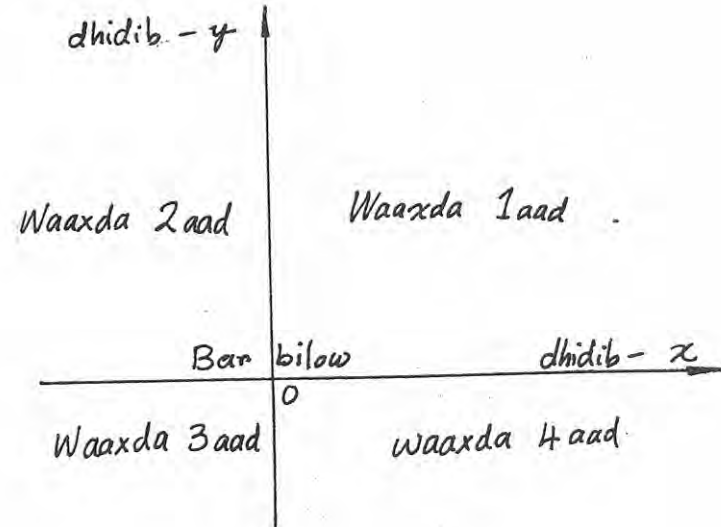 dhidib - y
Waaxda 2aad Waaxda 1aad
Bar bilow dhidib - x
O
Waaxda 3aad waaxda 4aad